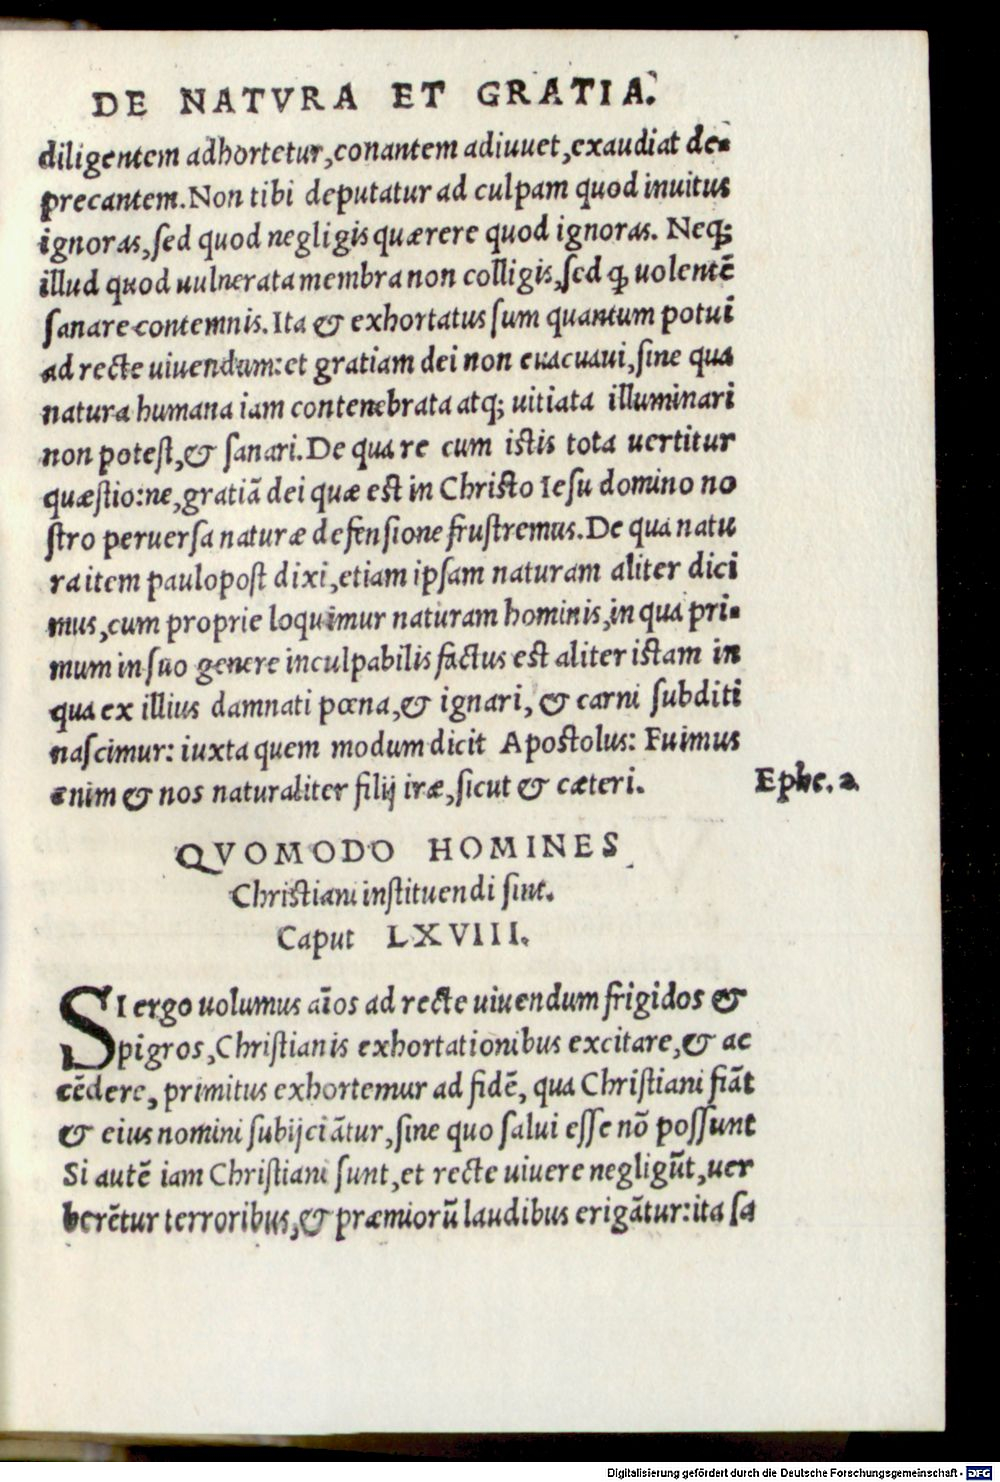 DE NATVRA ET GRATIA.
diligentem adhortetur, conantem adiuuet, exaudiat de-
precantem. Non tibi deputatur ad culpam quod inuitus
ignoras, sed quod negligis quærere quod ignoras. Neqꝫ
illud quod uulnerata membra non colligis, sed ꝙ uolentē
sanare contemnis. Ita & exhortatus sum quantum potui
ad recte uiuendum: et gratiam dei non euacuaui, sine qua
natura humana iam contenebrata atqꝫ uitiata illuminari
non potest, & sanari. De qua re cum istis tota uertitur
quæstio: ne, gratiā dei quæ est in Christo Iesu domino no
stro peruersa naturæ defensione frustremus. De qua natu
ra item paulopost dixi, etiam ipsam naturam aliter dici
mus, cum proprie loquimur naturam hominis, in qua pri-
mum in suo genere inculpabilis factus est aliter istam in
qua ex illius damnati pœna, & ignari, & carni subditi
nascimur: iuxta quem modum dicit Apostolus: Fuimus
enim & nos naturaliter filij iræ, sicut & cæteri.
Ephe. 2.
QVOMODO HOMINES
Christiani instituendi sint.
Caput LXVIII.
SI ergo uolumus aīos ad recte uiuendum frigidos &
pigros, Christianis exhortationibus excitare, & ac
cēdere, primitus exhortemur ad fidē, qua Christiani fiāt
& eius nomini subijciātur, sine quo salui esse nō possunt
Si autē iam Christiani sunt, et recte uiuere negligūt, uer
berētur terroribus, & præmiorū laudibus erigātur: ita sa
Digitalisierung gefördert durch die Deutsche Forschungsgemeinschaft - DFG